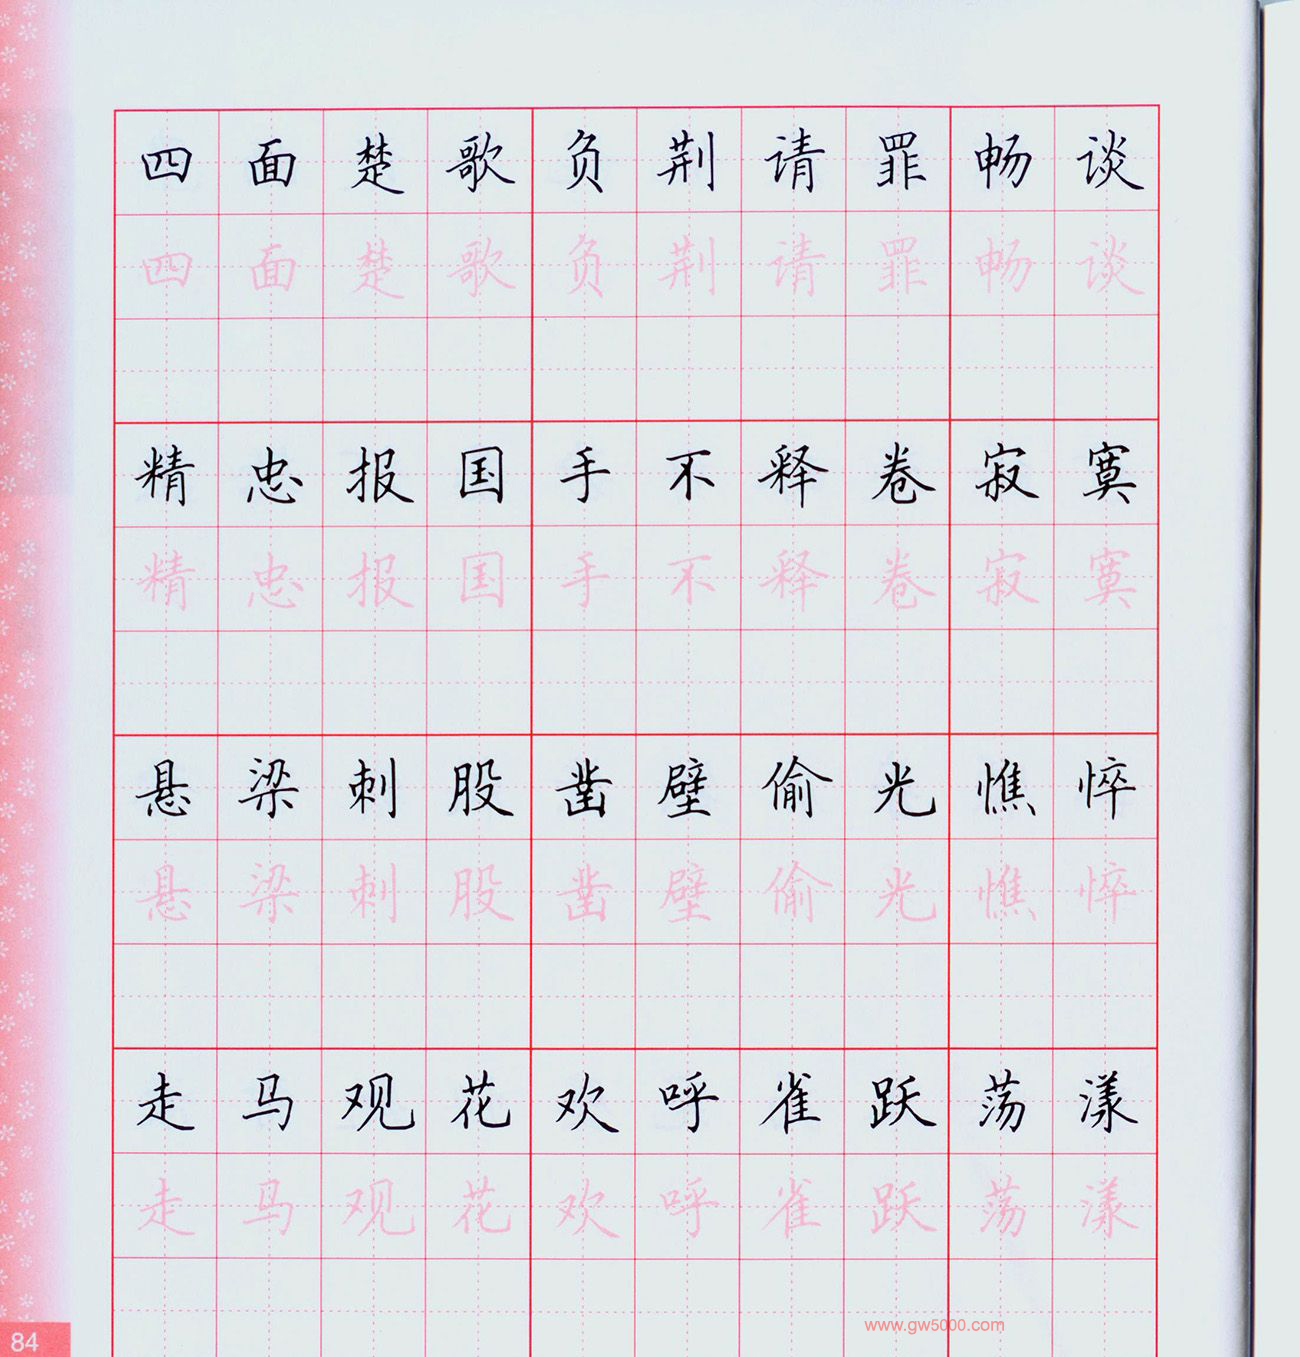 四面楚歌负荆请罪畅谈
四面楚歌负荆请罪畅谈
精忠报国手不释卷寂寞
精忠报国手不释卷寂寞
悬梁刺股凿壁偷光憔悴
悬梁刺股凿壁偷光憔悴
走马观花欢呼雀跃荡漾
走马观花欢呼雀跃荡漾
www.gw5000.com
84